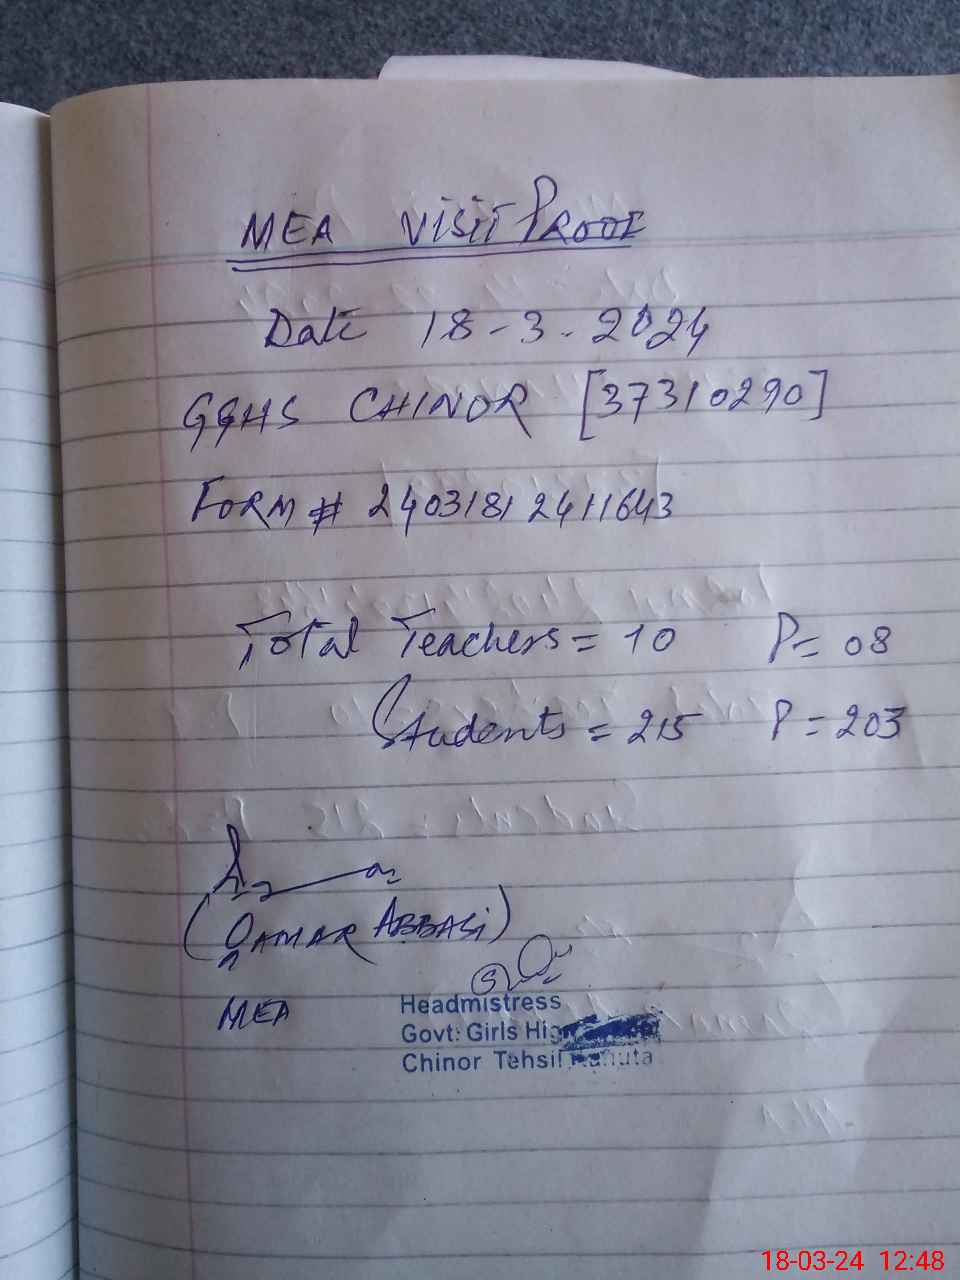 MEA VISIT PROOF
Date 18-3-2024
GGHS CHINOR [37310290]
FORM # 2403181 2411643
Total Teachers = 10 P= 08
Students = 215 P = 203
(QAMAR ABBASI)
MEA
Headmistress
Govt: Girls High
Chinor Tehsil Kahuta
18-03-24 12:48